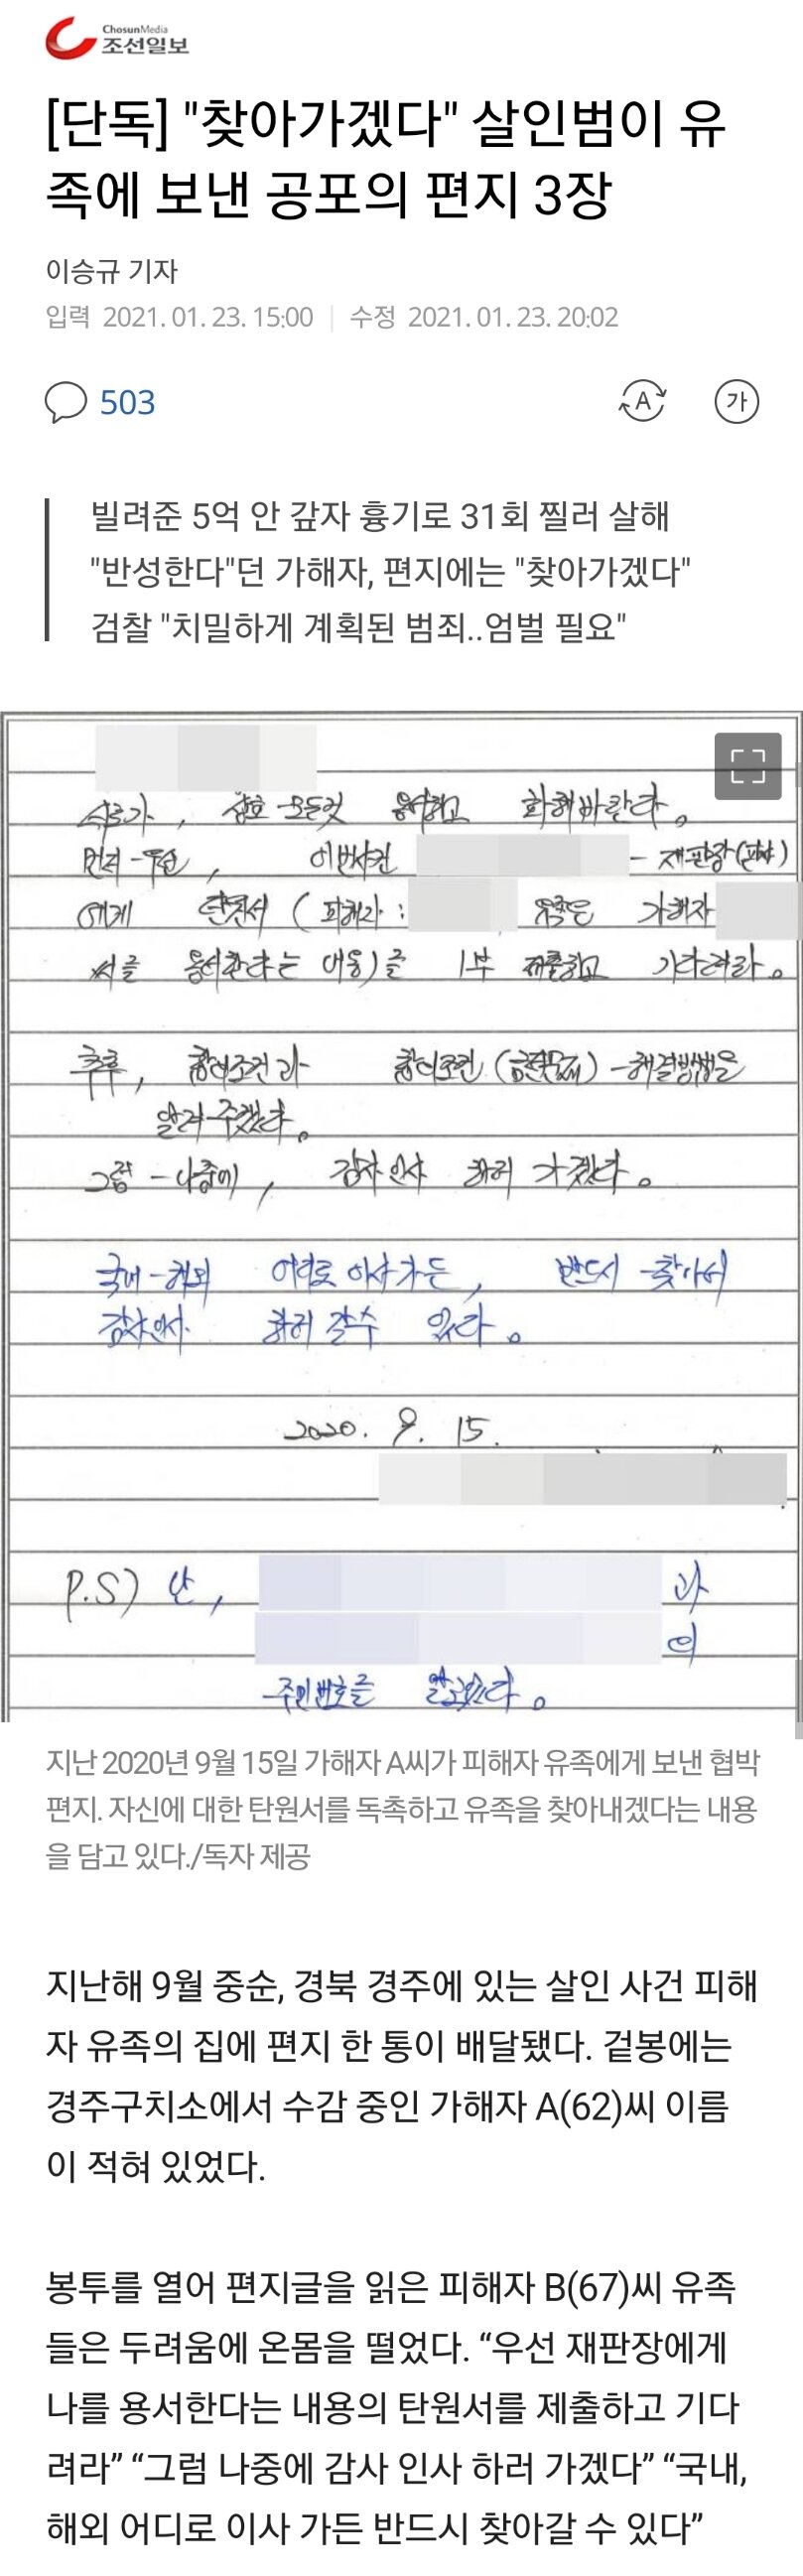 ChosunMedia
조선일보
[단독] "찾아가겠다" 살인범이 유
족에 보낸 공포의 편지 3장
이승규 기자
입력 2021. 01. 23. 15:00 | 수정 2021. 01. 23. 20:02
503
A
가
빌려준 5억 안 갚자 흉기로 31회 찔러 살해
"반성한다"던 가해자, 편지에는 "찾아가겠다"
검찰 "치밀하게 계획된 범죄..엄벌 필요"
서로가, 상호 모든것 용서하고 화해바란다.
먼저-우선, 이번사건 - 재판장(판사)
에게 탄원서 (피해자 : 유족은 가해자
씨를 용서한다는 내용)을 1부 제출하고 기다려라.
추후, 합의조건과 합의조건(금전문제)-해결방법을
알려주겠다.
그럼-나중에, 감사인사 하러 가겠다.
국내-해외 어디로 이사가든, 반드시-찾아서
감사인사 하러 갈수 있다.
2020. 9. 15.
P.S) 난, 과
의
주민번호를 알고있다.
지난 2020년 9월 15일 가해자 A씨가 피해자 유족에게 보낸 협박
편지. 자신에 대한 탄원서를 독촉하고 유족을 찾아내겠다는 내용
을 담고 있다./독자 제공
지난해 9월 중순, 경북 경주에 있는 살인 사건 피해
자 유족의 집에 편지 한 통이 배달됐다. 겉봉에는
경주구치소에서 수감 중인 가해자 A(62)씨 이름
이 적혀 있었다.
봉투를 열어 편지글을 읽은 피해자 B(67)씨 유족
들은 두려움에 온몸을 떨었다. “우선 재판장에게
나를 용서한다는 내용의 탄원서를 제출하고 기다
려라” “그럼 나중에 감사 인사 하러 가겠다” “국내,
해외 어디로 이사 가든 반드시 찾아갈 수 있다”